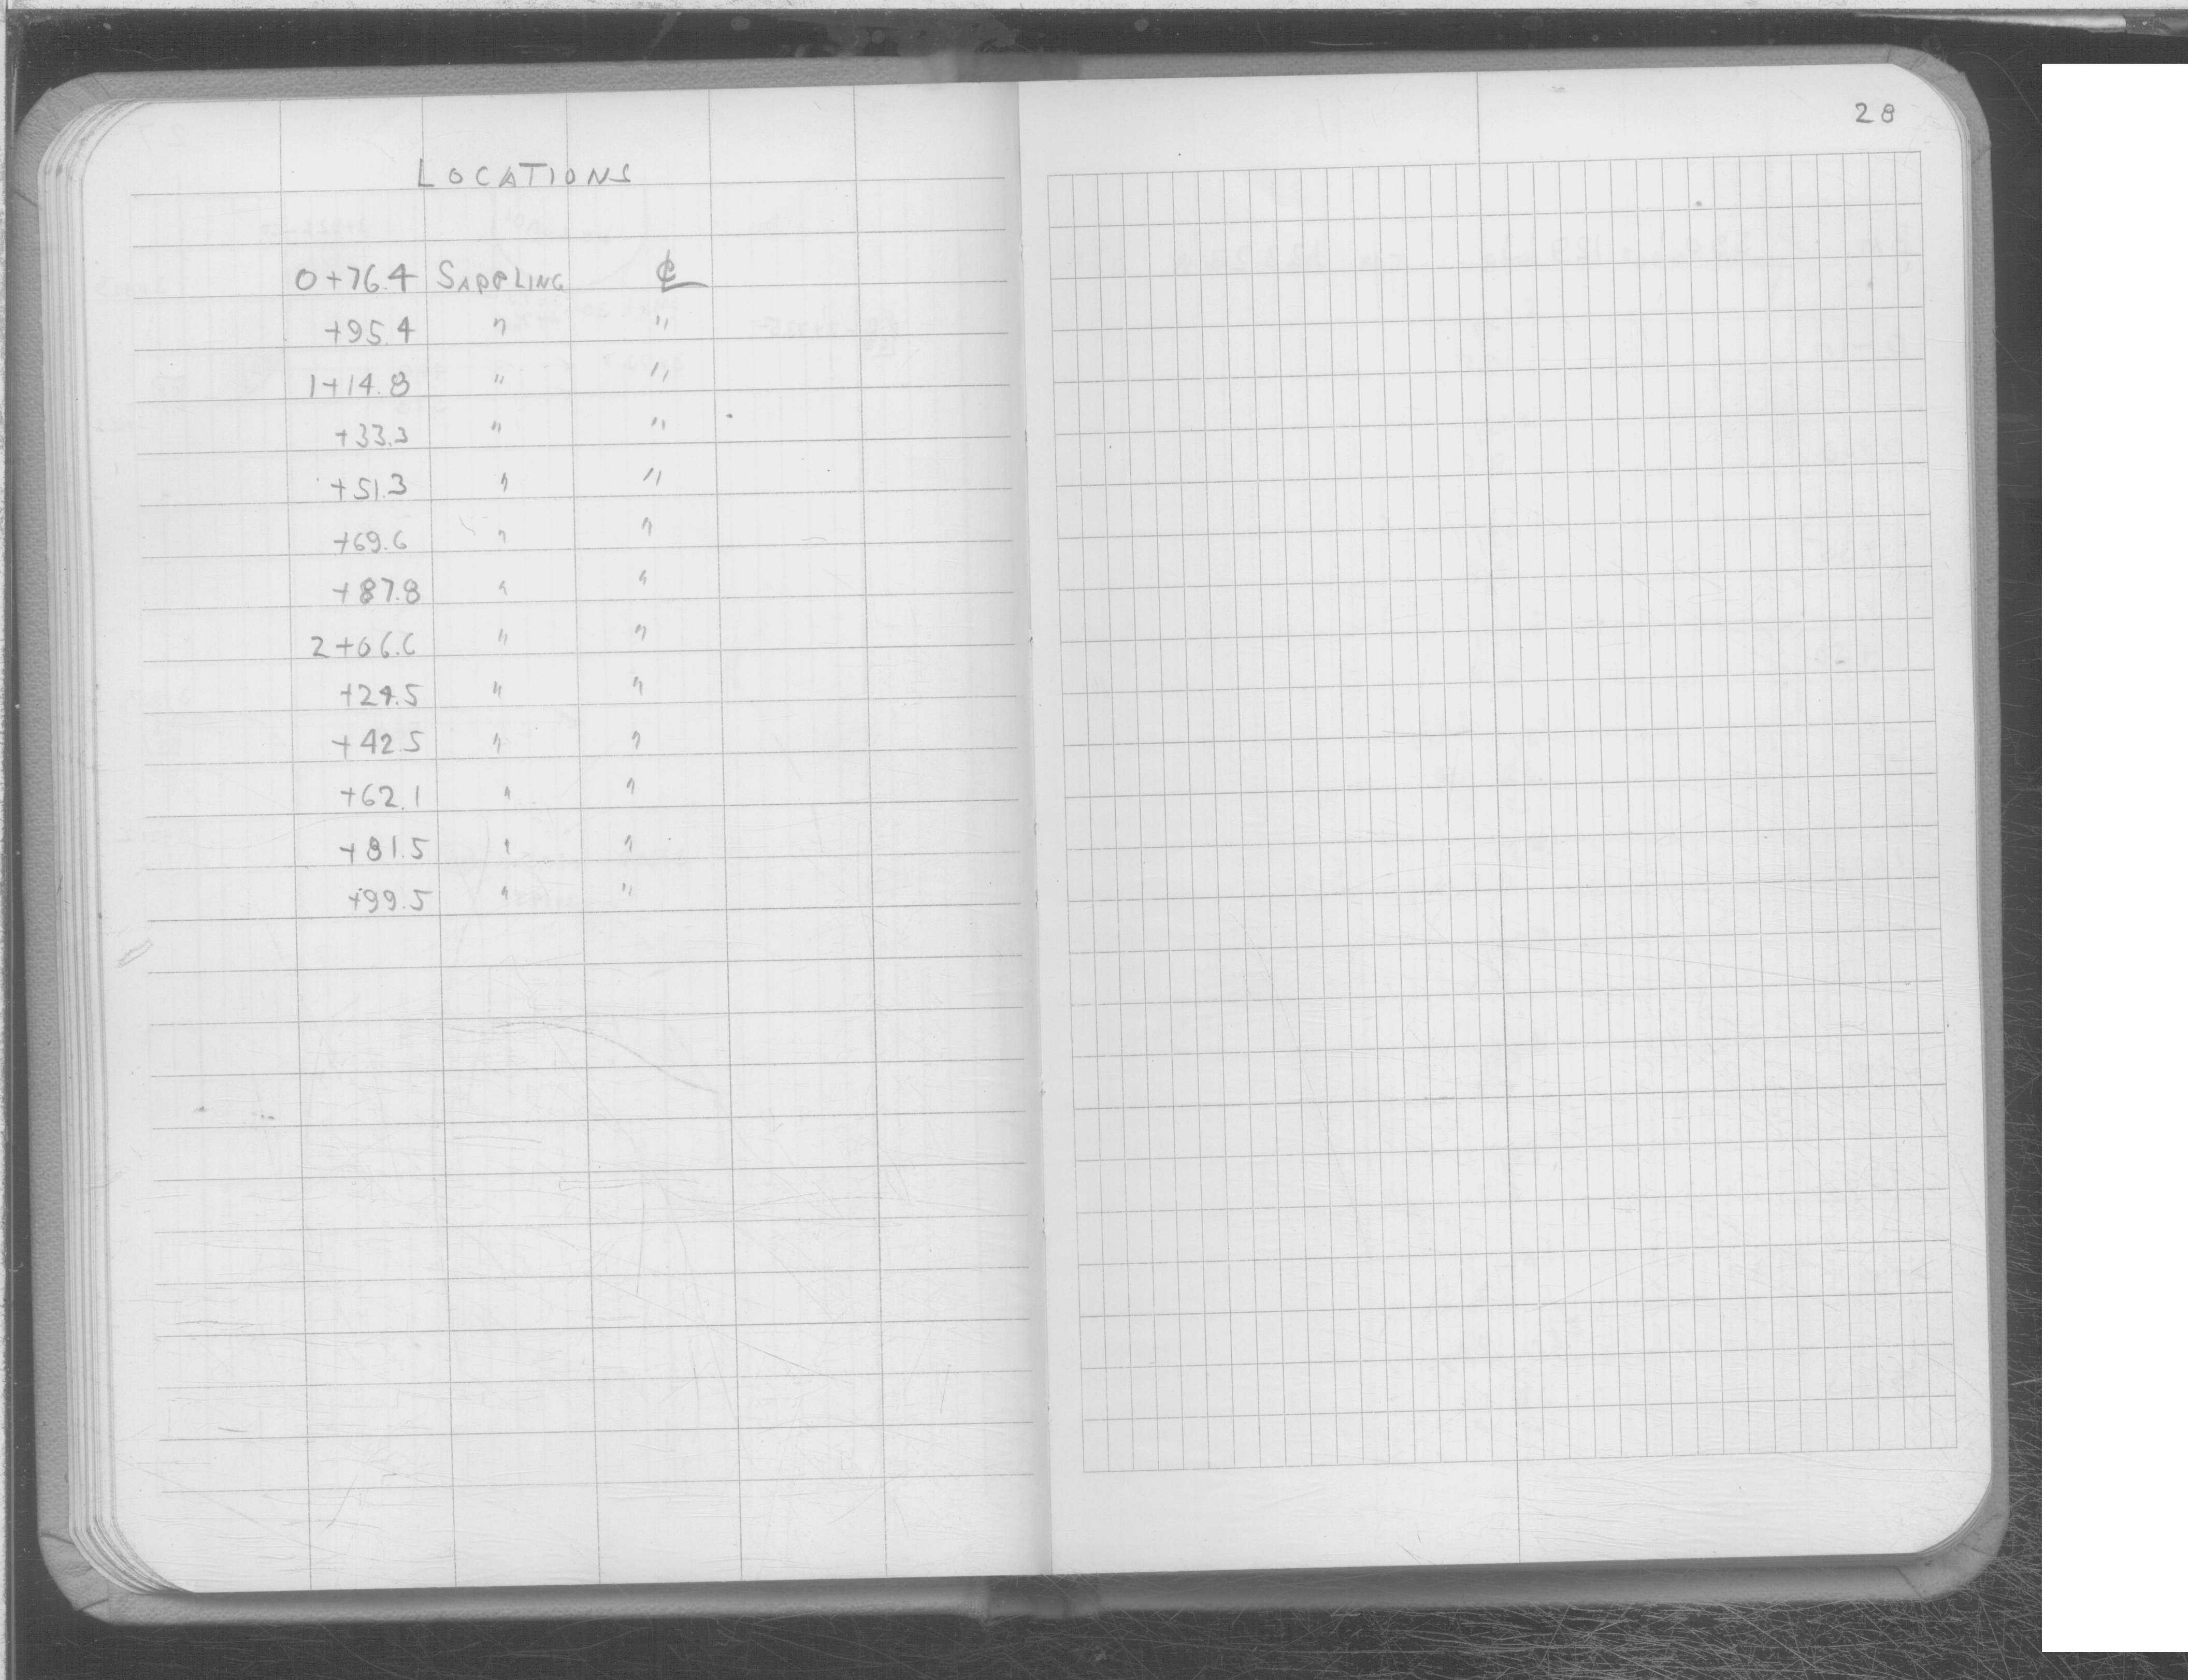 28
LOCATIONS
0+76.4 SAPPLING ℄
+95.4 " "
1+14.8 " "
+33.3 " "
+51.3 " "
+69.6 " "
+87.8 " "
2+06.6 " "
+24.5 " "
+42.5 " "
+62.1 " "
+81.5 " "
+99.5 " "